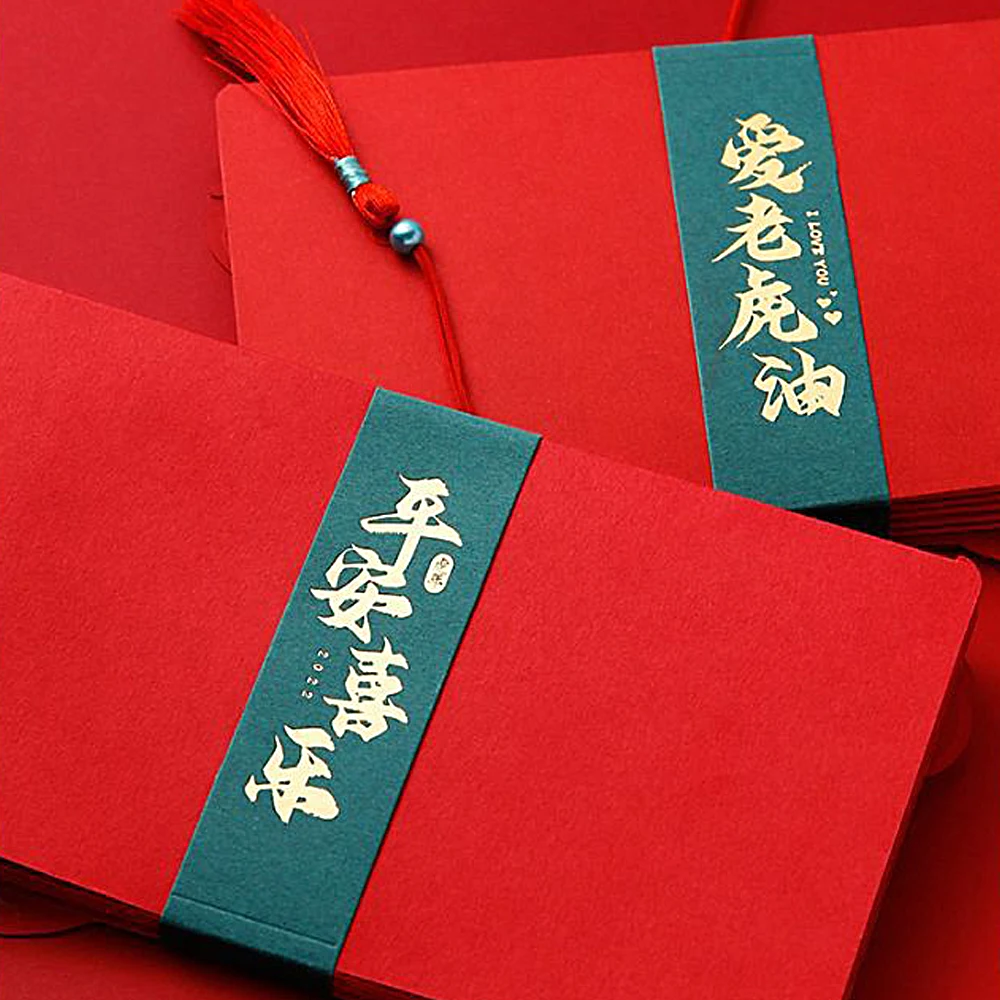 爱老虎油
I LOVE YOU
平安喜乐
2022